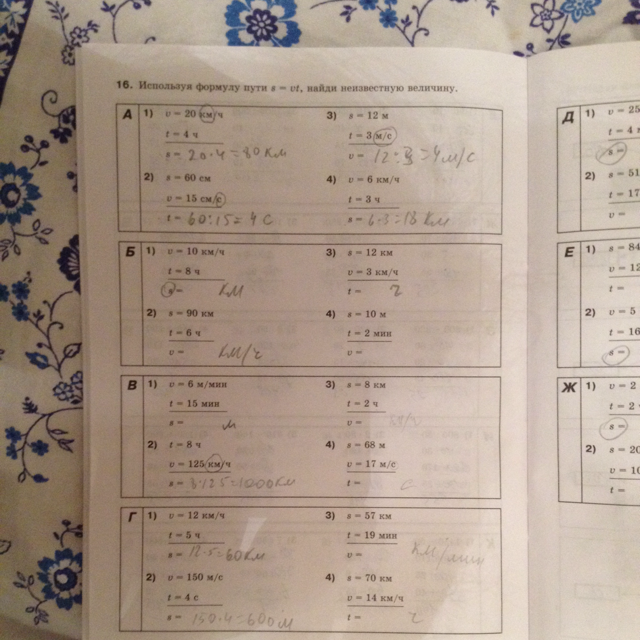 16. Используя формулу пути s = vt, найди неизвестную величину.
А
1) v = 20 км/ч
t = 4 ч
s = 20·4=80 км
2) s = 60 см
v = 15 см/с
t = 60:15=4 с
3) s = 12 м
t = 3 м/с
v = 12:3=4 м/с
4) v = 6 км/ч
t = 3 ч
s = 6·3=18 км
Б
1) v = 10 км/ч
t = 8 ч
s = км
2) s = 90 км
t = 6 ч
v = км/ч
3) s = 12 км
v = 3 км/ч
t = ч
4) s = 10 м
t = 2 мин
v =
В
1) v = 6 м/мин
t = 15 мин
s = м
2) t = 8 ч
v = 125 км/ч
s = 8·125=1000 км
3) s = 8 км
t = 2 ч
v = км/ч
4) s = 68 м
v = 17 м/с
t = с
Г
1) v = 12 км/ч
t = 5 ч
s = 12·5=60 км
2) v = 150 м/с
t = 4 с
s = 150·4=600 м
3) s = 57 км
t = 19 мин
v = км/мин
4) s = 70 км
v = 14 км/ч
t = ч
Д
1) v = 25
t = 4
s =
2) s = 51
t = 17
v =
Е
1) s = 84
v = 12
t =
2) v = 5
t = 16
s =
Ж
1) v = 2
t = 2
s =
2) s = 20
v = 10
t =